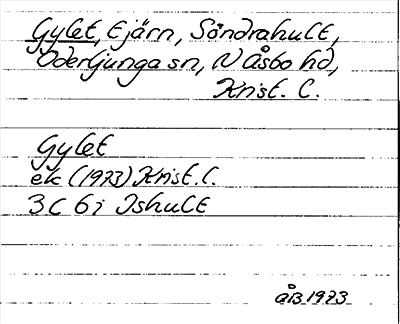 Gylet, Ejärn, Söndrahult,
Oderljunga sn, N Åsbo hd,
Krist. l.
Gylet
ek (1973) Krist. l.
3C 6i Ishult
åB 1973